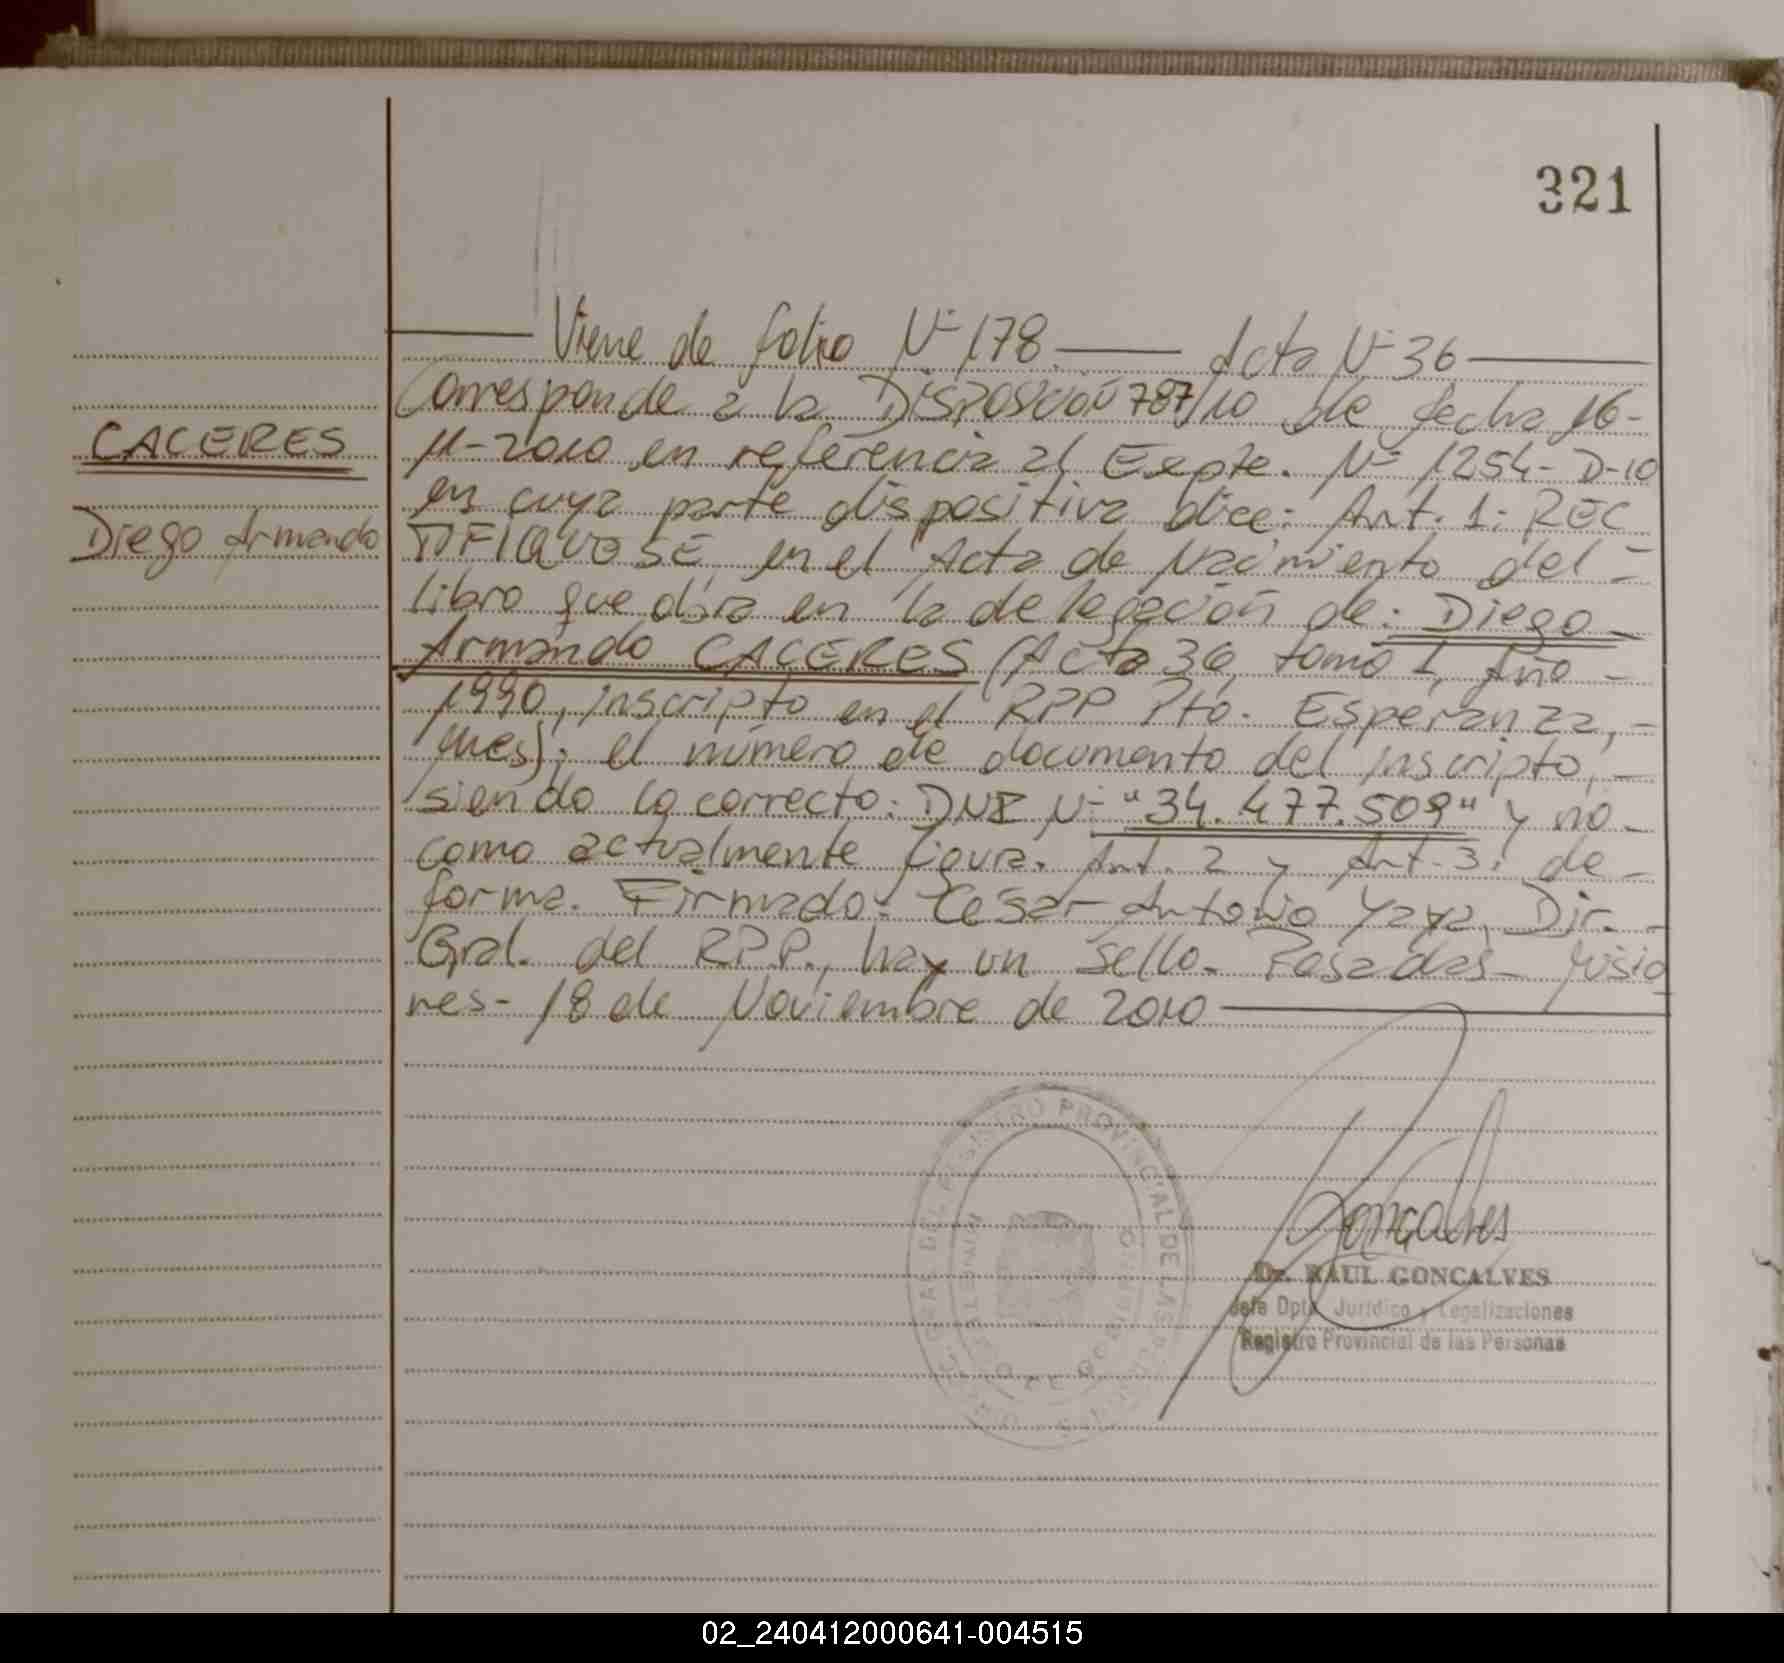 321
Viene de folio Nº 178. Acta Nº 36
Corresponde a la Disposición 787/10 de fecha 16-
CACERES
11-2010 en referencia al Expte. Nº 1254-D-10
en cuya parte dispositiva dice: Art. 1: REC
Diego Armando
TIFIQUESE en el Acta de Nacimiento del =
libro que obra en la delegación de: Diego
Armando CACERES (Acta 36, tomo 1, Año -
1990, inscripto en el RPP Pto. Esperanza, -
Mnes); el número de documento del inscripto, -
siendo lo correcto: DNI Nº "34.477.509" y no -
como actualmente figura. Art. 2 y Art. 3: de -
forma. Firmado: Cesar Antonio Yaya, Dir. -
Gral. del RPP., hay un sello. Posadas - Misio
nes- 18 de Noviembre de 2010
Goncalves
Dr. RAUL GONCALVES
Jefe Dpto. Jurídico y Legalizaciones
Registro Provincial de las Personas
GRAL. DEL REGISTRO PROVINCIAL DE LAS
MINISTERIO DE GOBIERNO
02_240412000641-004515